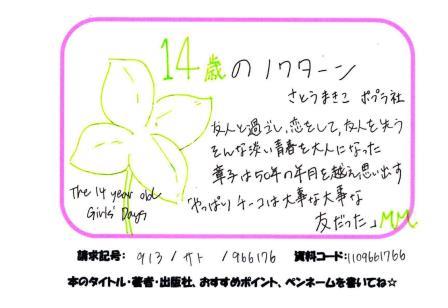 14歳のノクターン
さとうまきこ ポプラ社
友人と過ごし、恋をして、友人を失う
そんな淡い青春を大人になった
章子は50年の年月を越え、思い出す
「やっぱりチーコは大事な大事な
友だった」MM
The 14 year old
Girls' Days
請求記号: 913 / サト / 966176 資料コード:1109661766
本のタイトル・著者・出版社、おすすめポイント、ペンネームを書いてね☆